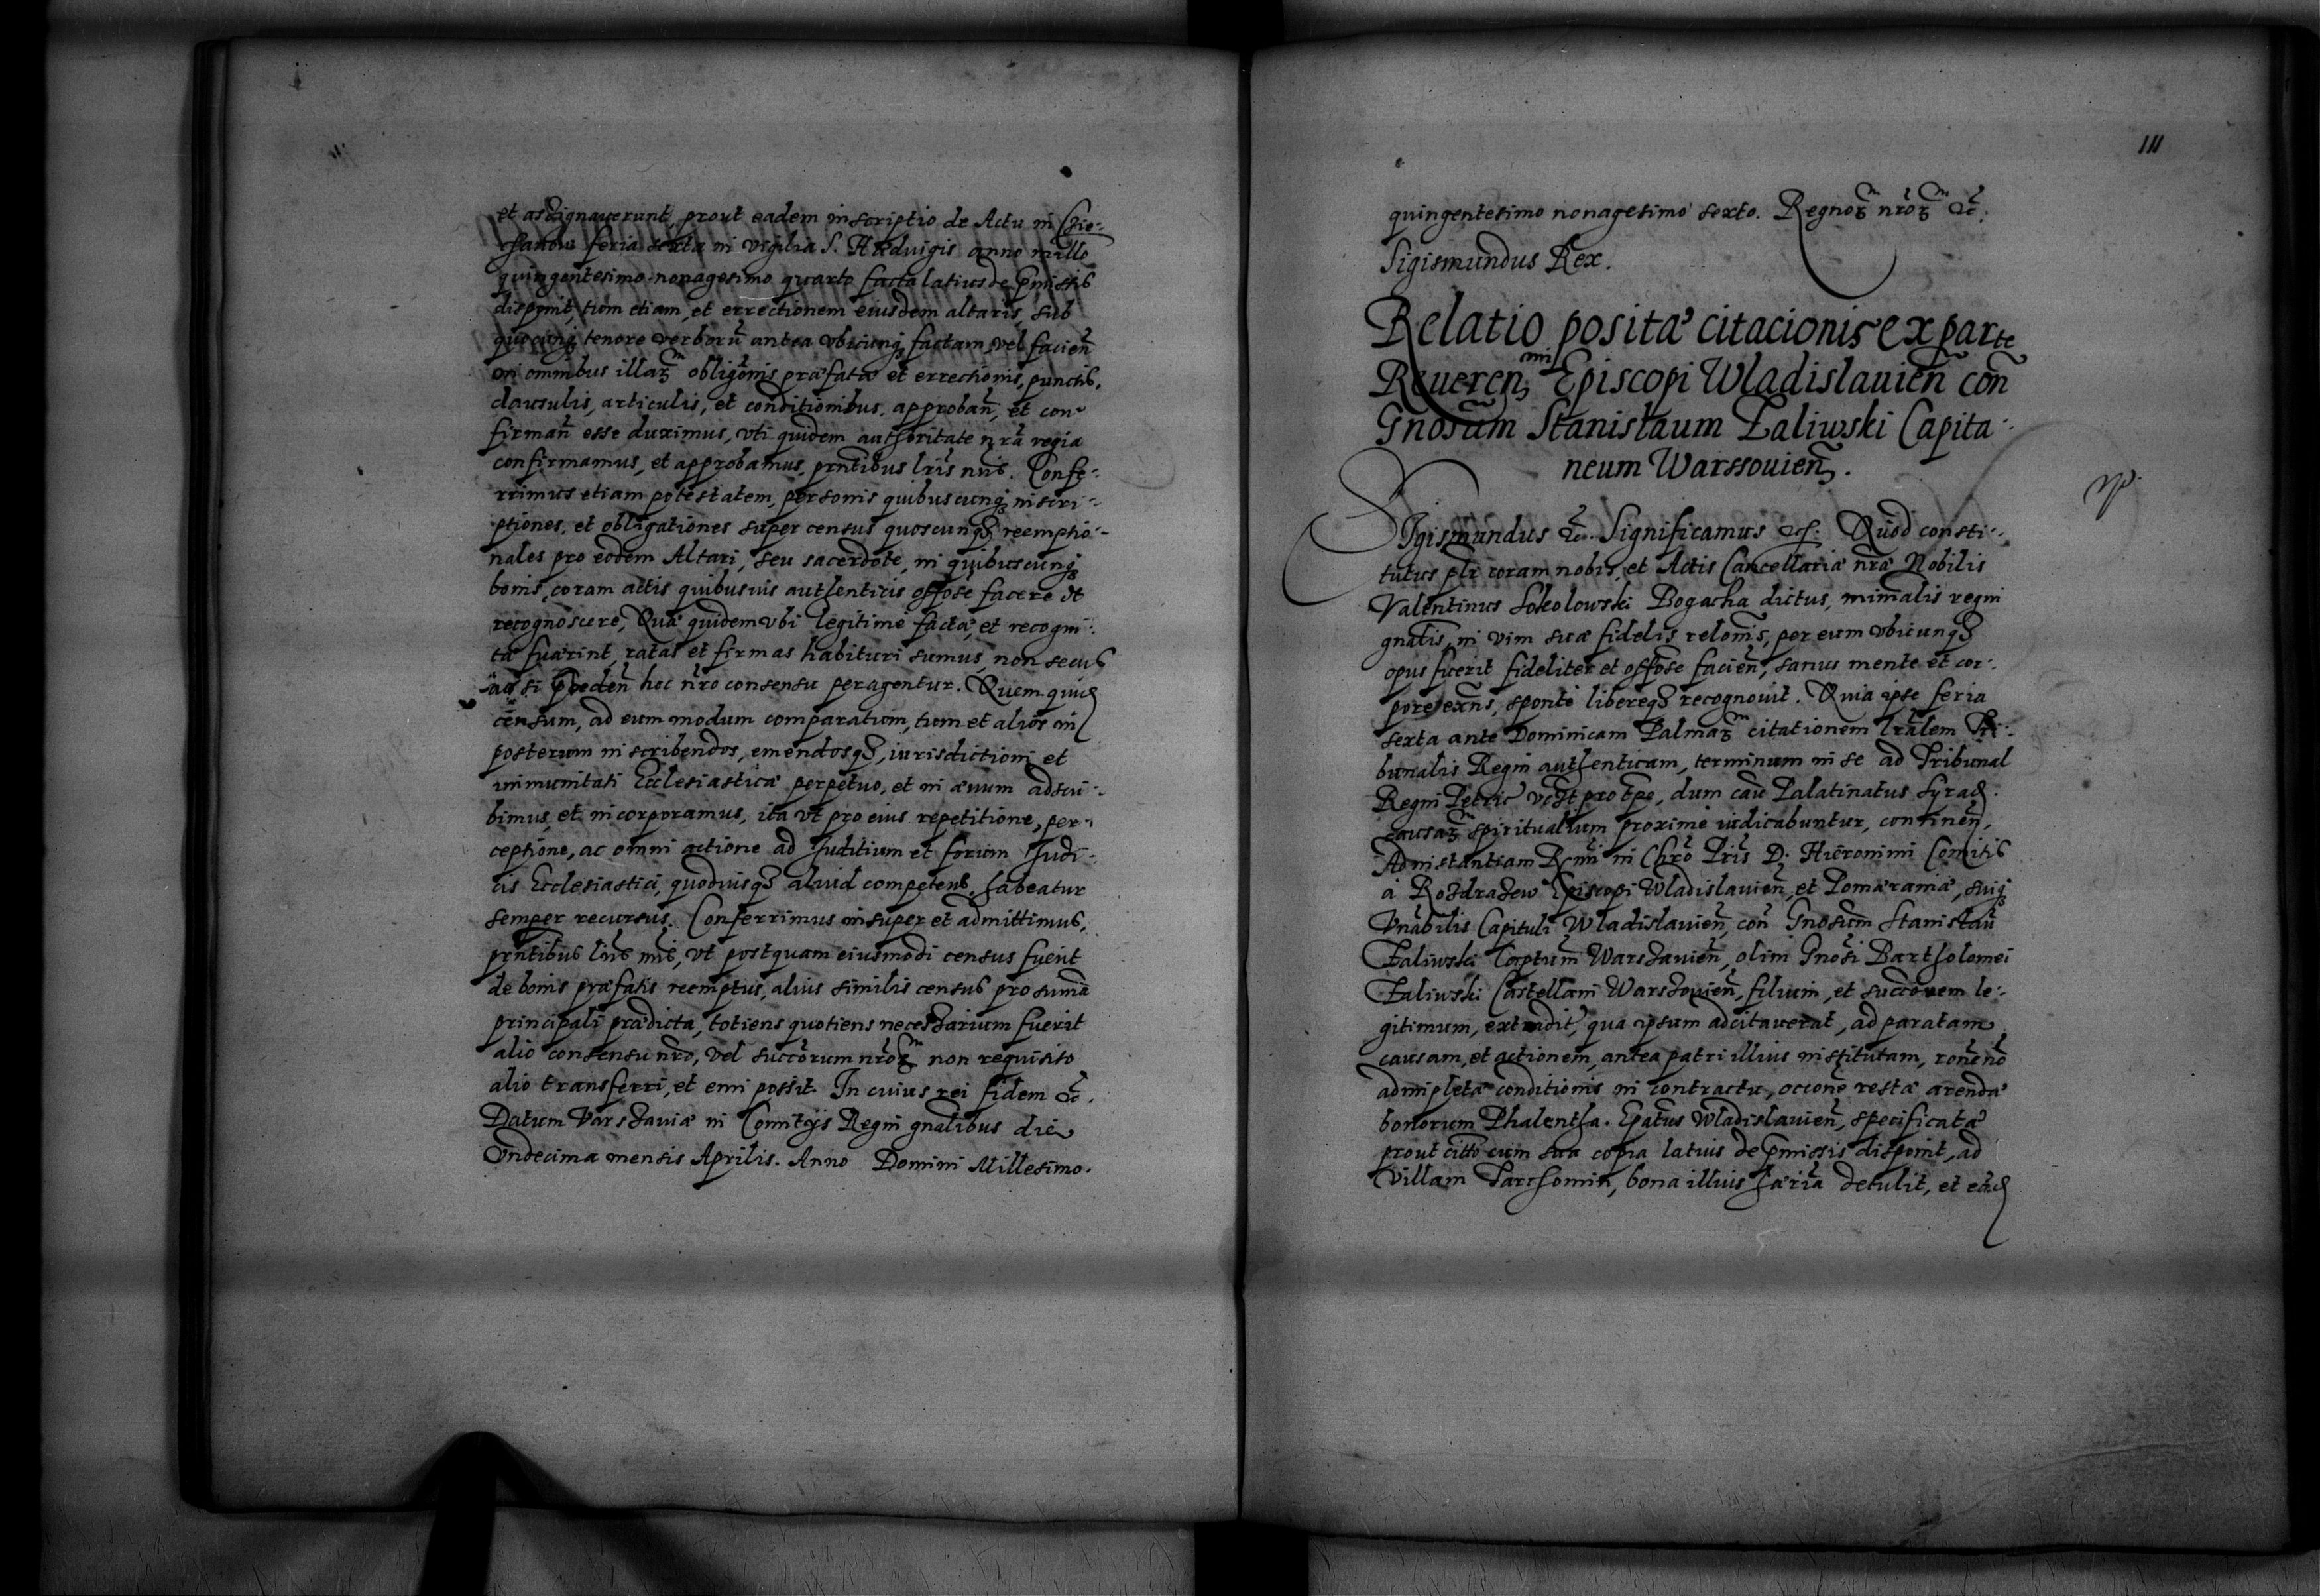 et assignauerunt, prout eadem inscriptio de Actu in Cie-
chanów feria sexta in vigilia S. Hedvigis anno millo
quingentesimo nonagesimo quarto facta latius de pmissis
disponit, tum etiam, et errectionem eiusdem altaris, sub
quocunq tenore verborũ antea vbicunq factam, vel facien̄
in omnibus illaꝝ obligōnis præfatæ et errectionis, punctis,
clausulis, articulis, et conditionibus, approban̄, et con-
firman̄ esse duximus, vti quidem authoritate nrã regia
confirmamus, et approbamus, prñtibus lris nris. Confe-
rrimus etiam potestatem, personis quibuscunq inscri-
ptiones, et obligationes super census quoscunq reemptio-
nales pro eodem Altari, seu sacerdote, in quibuscunq
bonis, coram actis quibusuis authenticis offose facere et
recognoscere, Quæ quidem vbi legitime factæ, et recogni-
tæ fuærint, ratas et firmas habituri sumus, non secus
ac si pceden̄ hoc nr̃o consensu peragentur. Quem quid
censum, ad eum modum comparatum, tum et alios in
posterum inscribendos, emendosq, iurisdictioni et
immunitati Ecclesiasticæ perpetuo, et in æuum adscri-
bimus, et incorporamus, ita vt pro eius repetitione, per-
ceptione, ac omni actione ad Juditium et forum Judi-
cis Ecclesiastici, quoduisq aliud competens, habeatur
semper recursus. Conferrimus insuper et admittimus,
prñtibus lris nris, vt postquam eiusmodi census fuerit
de bonis præfatis reemptus, alius similis census pro sumã
principali prædicta, totiens quotiens necessarium fuerit
alio consensu nr̃o, vel succorum nr̃oꝝ non requisito
alio transferri, et emi possit. In cuius rei fidem &c.
Datum Varssauiæ in Comitijs Regni gnalibus die
Vndecima mensis Aprilis. Anno Domini Millesimo.
111
quingentesimo nonagesimo sexto. Regnoꝝ nr̃oꝝ &c.
Sigismundus Rex.
Relatio positæ citacionis ex parte
Reueren mi Episcopi Wladislauien̄ con̄
Gnosum Stanislaum Zaliwski Capita-
neum Warssouien.
SIgismundus &c. Significamus &c. Quod consti-
tutus plr coram nobis, et Actis Cancellariæ nræ Nobilis
Valentinus Sokolowski Bogacha dictus, minialis regni
gnalis, in vim suæ fidelis relonis, per eum vbicunq
opus fuerit fideliter et offose facien̄, sanus mente et cor-
pore exns, sponte libereq recognouit. Quia ipse feria
sexta ante Dominicam Palmaꝝ citationem lralem Tri-
bunalis Regni authenticam, terminum in se ad Tribunal
Regni Petric vcst pro tpe, dum cau Palatinatus Syrad.
causaꝝ spiritualium proxime iudicabuntur, continen̄,
Ad instantiam Rmi in Chro Pris D. Hieronimi Comitis
a Rozdrazew Episcopi Wladislauien̄, et Pomæraniæ, suiq
Vnabilis Capituli Wladislauien̄, con̄ Gnosum Stanislau
Zaliwski Captum Warssauien̄, olim Gnosi Bartholomei
Zaliwski Castellani Warssouien̄, filium, et succorem le-
gitimum, extradit, qua ipsum adcitauerat, ad paratam
causam, et actionem, antea patri illius institutam, rone no
adimpletæ conditionis in contractu, occone restæ arendæ
bonorum Phalentha. Epatus Wladislauien̄, specificatæ
prout citto cum sua copia latius de pmissis disponit, ad
villam Parchomin, bona illius hæria detulit, et eand